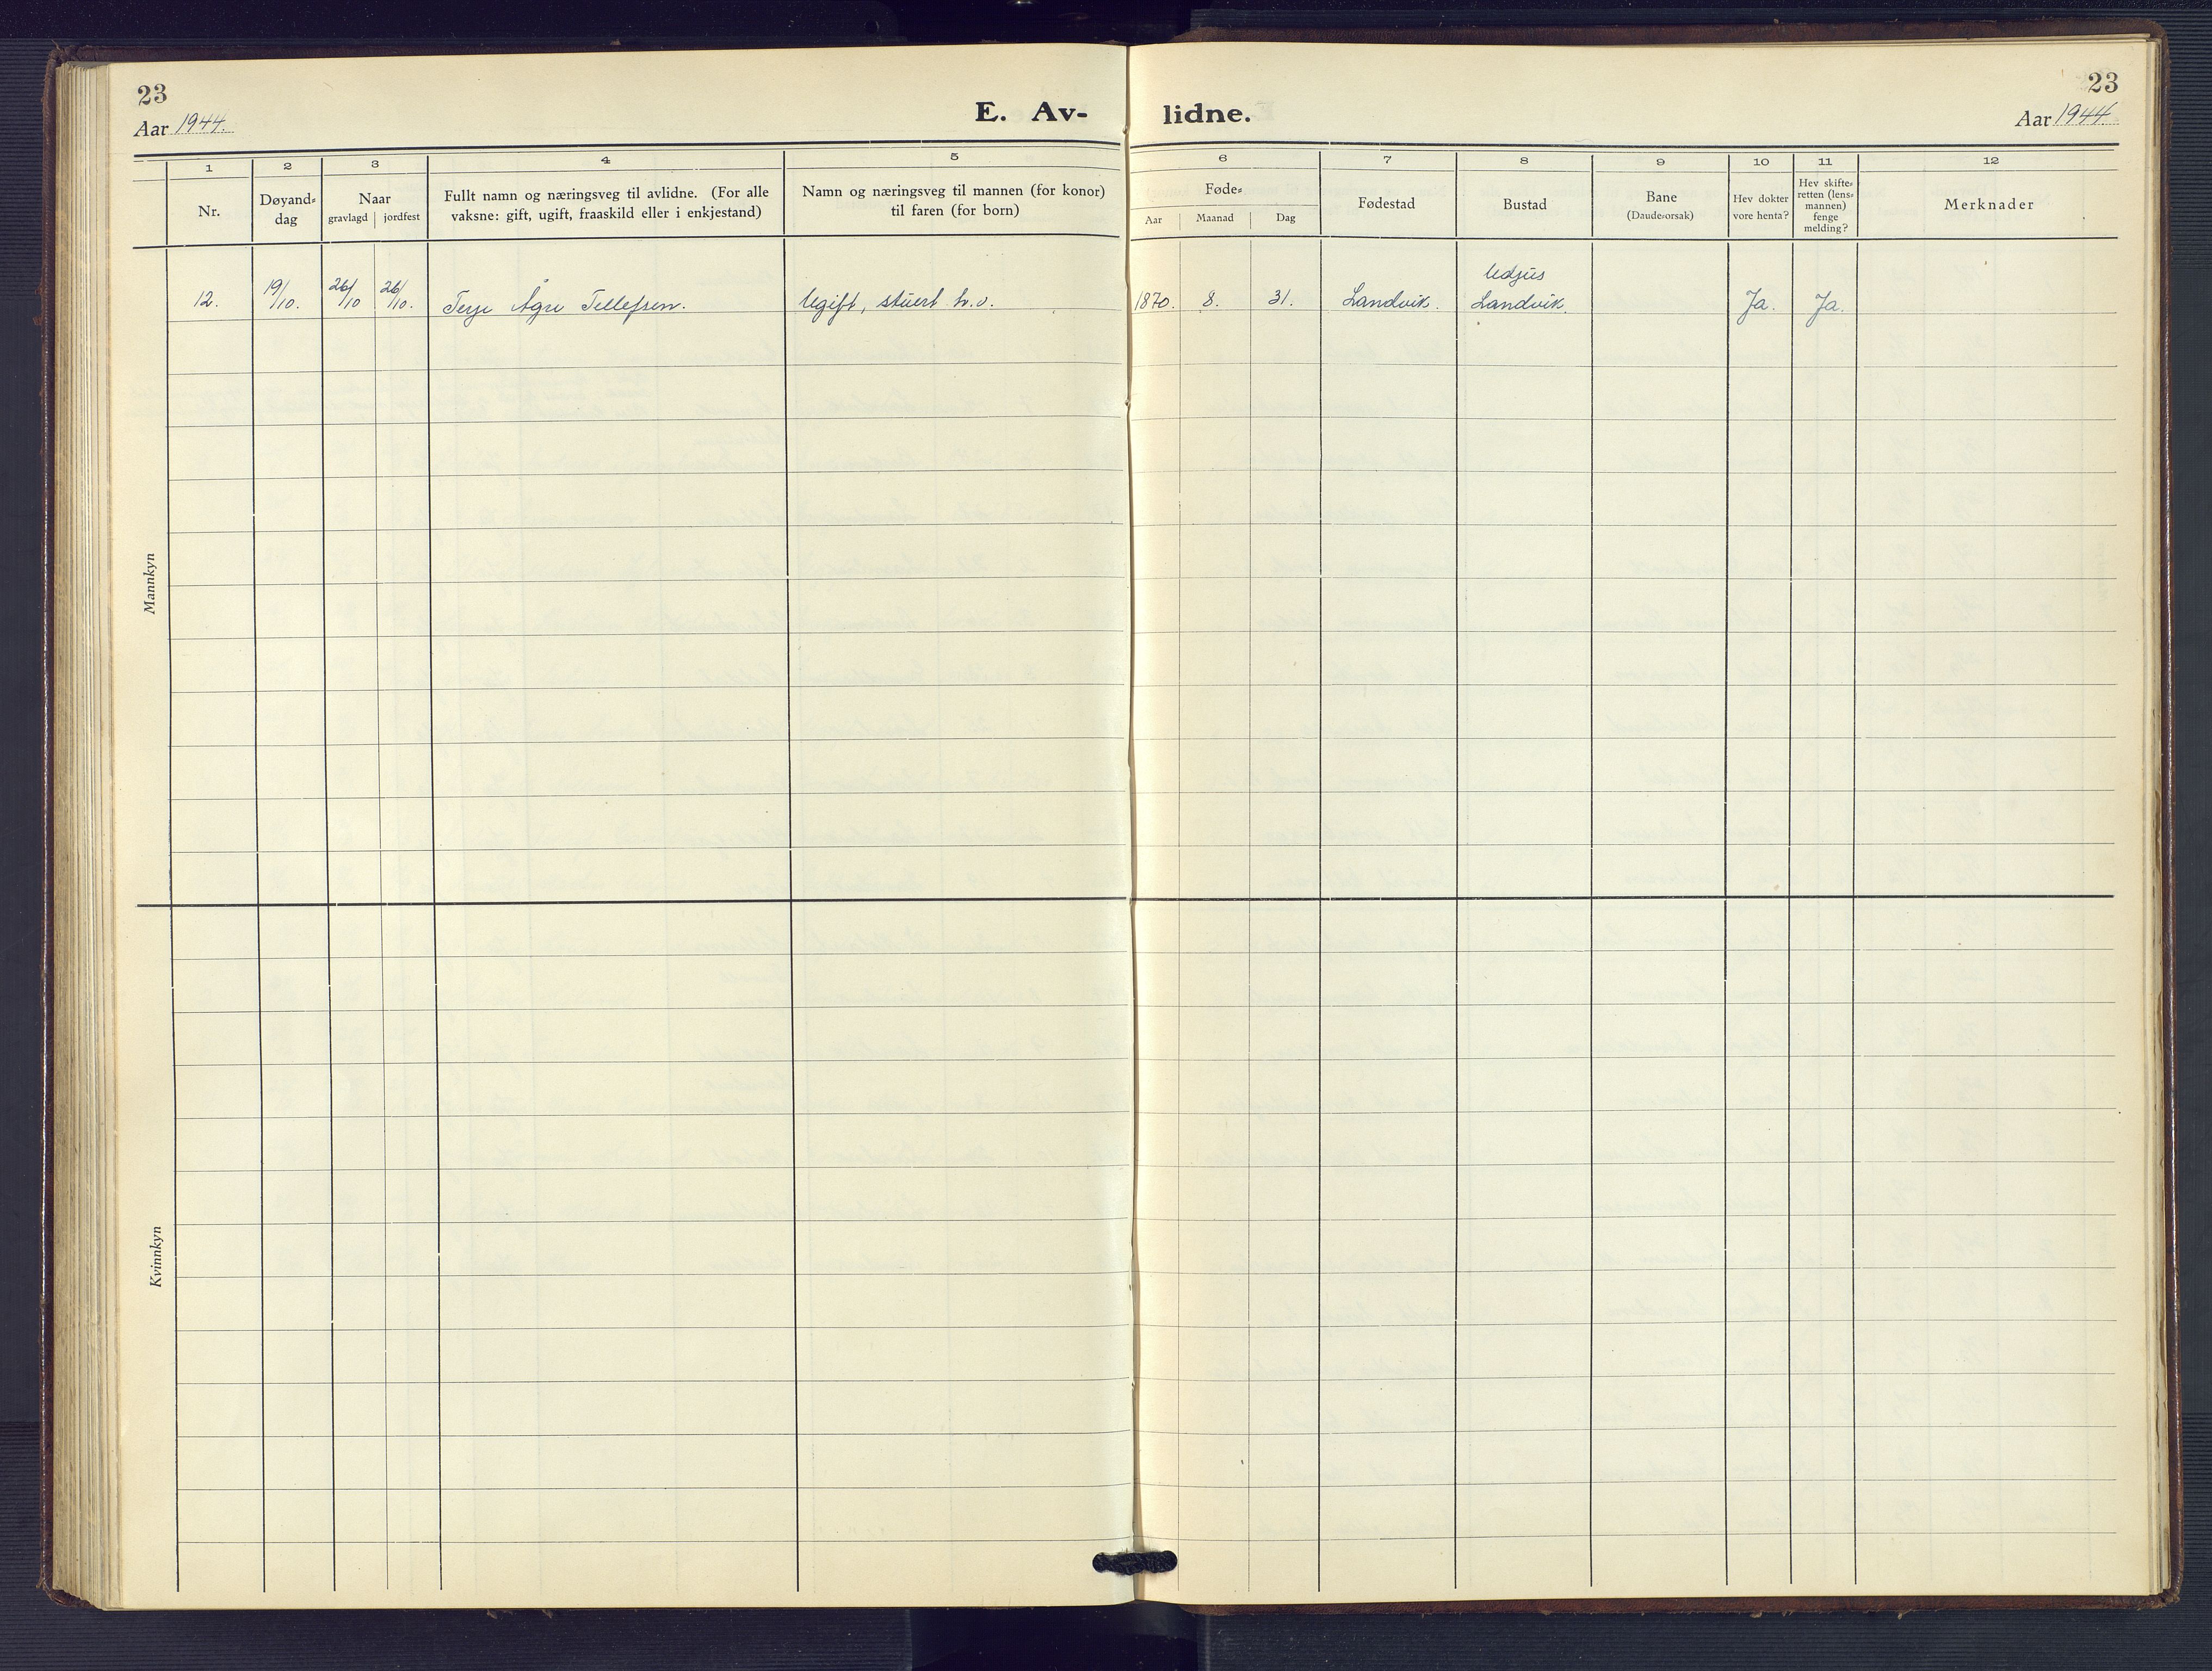 23
Aar 1944.
E. Av-
lidne.
23
Aar 1944
1 2 3 4 5 6 7 8 9 10 11 12
Nr.
Døyand-
dag
Naar
gravlagd jordfest
Fullt namn og næringsveg til avlidne. (For alle
vaksne: gift, ugift, fraaskild eller i enkjestand)
Namn og næringsveg til mannen (for konor)
til faren (for born)
Føde-
Aar Maanad Dag
Fødestad
Bustad
Bane
(Daudeorsak)
Hev dokter
vore henta?
Hev skifte-
retten (lens-
mannen)
fenge
melding?
Merknader
Mannkyn
12. 19/10. 26/10 26/10. Terje Ågre Tellefsen. Ugift, stuert h.v. 1870. 8. 31. Landvik. Udjus
Landvik. Ja. Ja.
Kvinnkyn